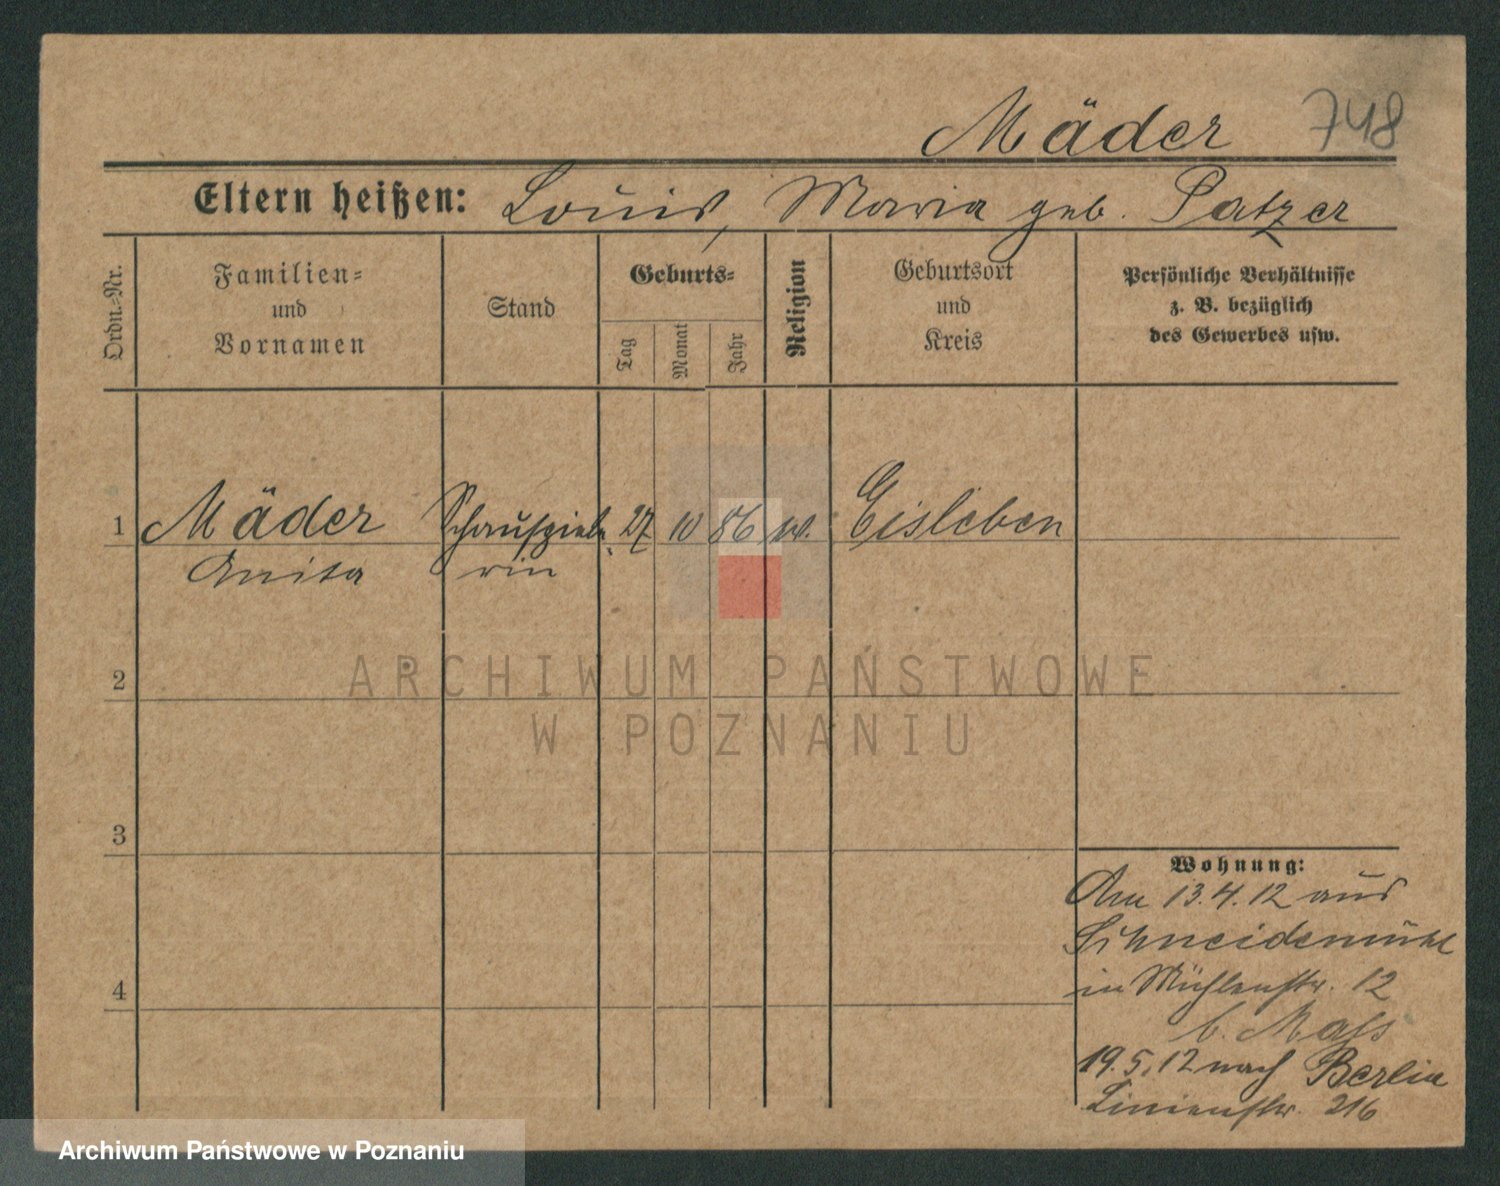 Mäder 748
Eltern heißen: Louis, Maria geb. Patzer
Ordn.-Nr.
Familien-
und
Vornamen
Stand
Geburts-
Tag
Monat
Jahr
Religion
Geburtsort
und
Kreis
Persönliche Verhältnisse
z. B. bezüglich
des Gewerbes usw.
1 Mäder Schauspiele- 27 10 86 Eisleben
Anita rin
2
3
4
Wohnung:
Am 13.4.12 aus
Schneidemühl
in Mühlenstr. 12
b. Mass
19.5.12 nach Berlin
Linienstr. 216
ARCHIWUM PAŃSTWOWE
W POZNANIU
Archiwum Państwowe w Poznaniu